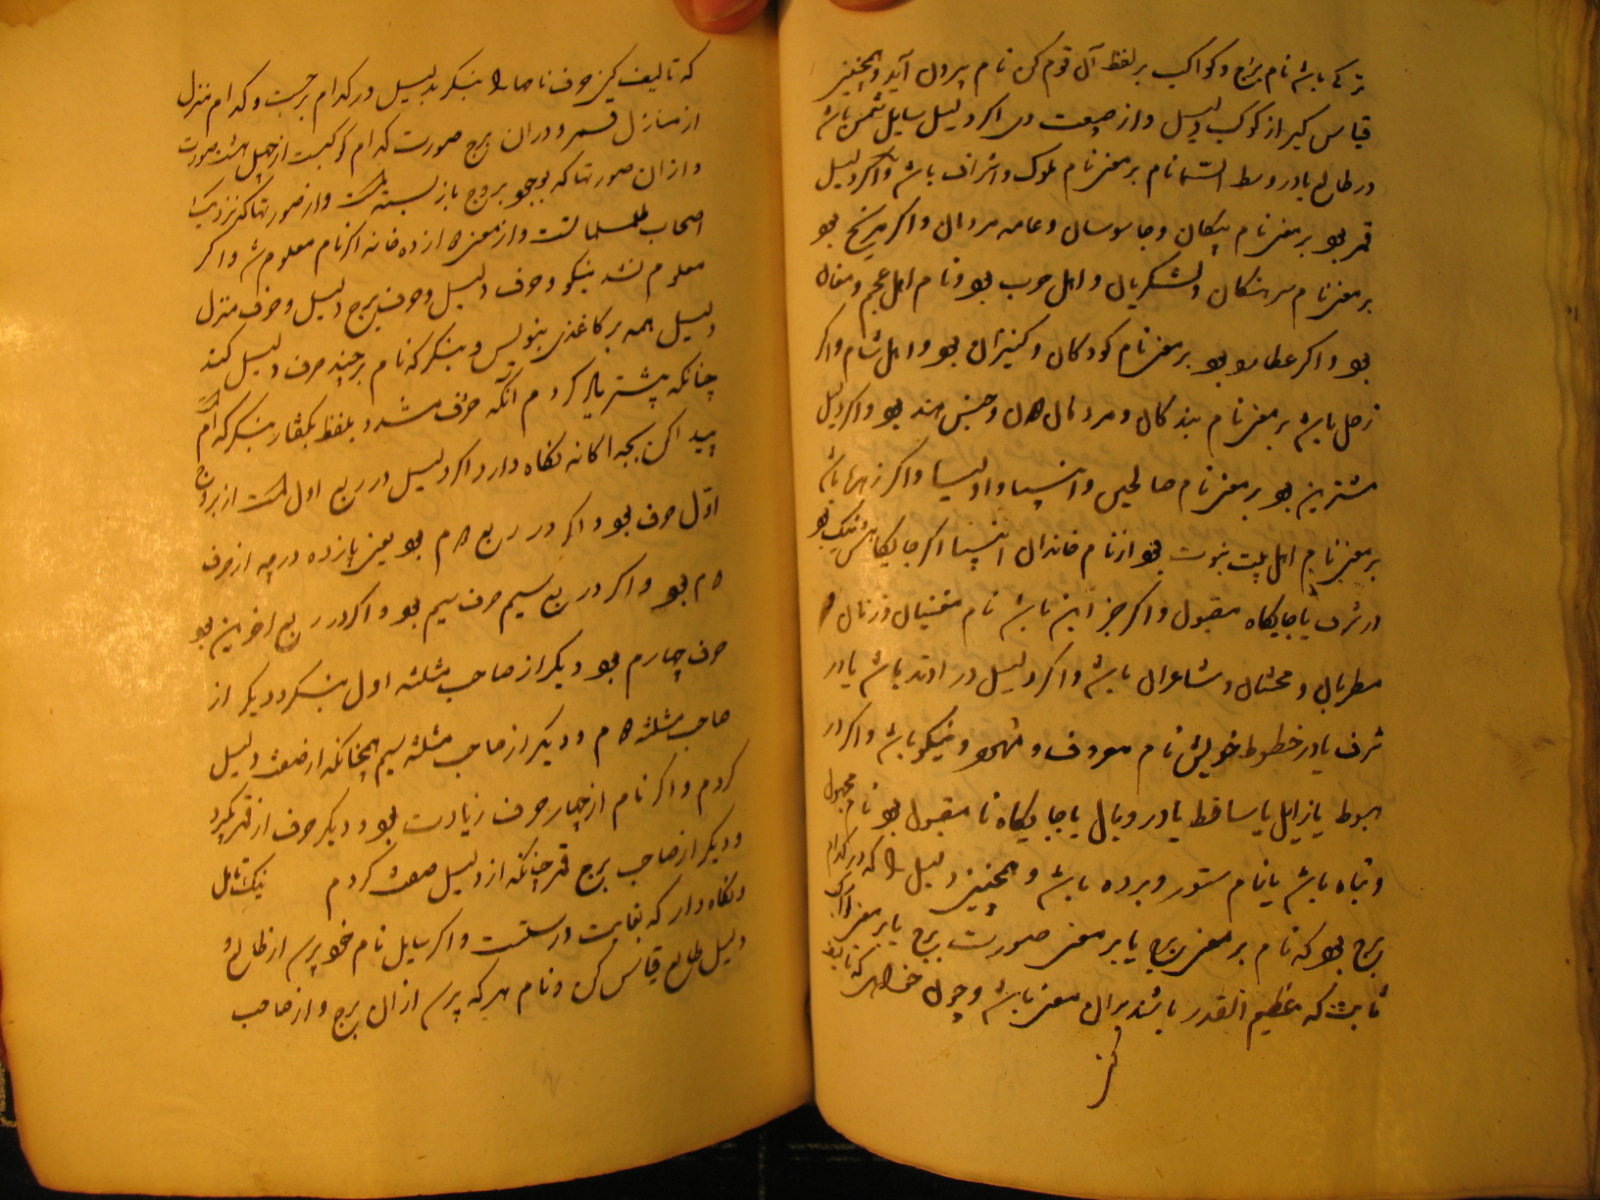 ترکی باشد نام برج و کواکب بر لفظ آن قوم کن نام بیرون آید و همچنین
قیاس کیر از کوکب دلیل و از صفت وی اکر دلیل سایل شمس باشد
در طالع یا در وسط السما نام بر معنی نام ملوک و اشراف باشد و اکر دلیل
قمر بود بر معنی نام پیکان و جاسوسان و عامه مردمان و اکر مریخ بود
بر معنی نام سرهنکان و لشکریان و اهل حرب بود و نام اهل عجم و مغان
بود و اکر عطارد بود بر معنی نام کودکان و کنیزان بود و اهل شام و اکر
زحل باشد بر معنی نام بندکان و مردمان دون و حبش هند بود و اکر دلیل
مشتری بود بر معنی نام صالحین و انبیا و اولیا و اکر زهره باشد
بر معنی نام اهل بیت نبوت بود از نام خاندان انبیا اکر جایکاهش نیک بود
در شرف یا جایکاه مقبول و اکر جز این باشد نام مغنیان و زنان
مطربان و مخنثان و شاعران باشد و اکر دلیل در اوتد باشد یا در
شرف یا در خطوط خویش نام معروف و مشهور و نیکو باشد و اکر در
هبوط یا زایل یا ساقط یا در وبال یا جایکاه نا مقبول بود نام مجهول
و تباه باشد یا نام ستور و برده باشد و همچنین دلیل را که در کدام
برج بود که نام بر معنی برج یا بر معنی صورت برج یا بر معنی
ثابت که عظیم القدر باشند بران معنی باشد و چون خواهی که تالیف
کنی
که تالیف کنی حرف نامها را بنکر بدلیل در کدام برجست و کدام منزل
از منازل قمر و دران برج صورت کدام کوکبست از چهل هشت صورت
و ازان صورتها که بوجوه بروج باز بسته است و از صورتها که نزدیک
اصحاب طلسماتست و از معنی دوازده خانه اکر نام معلوم شد و اکر
معلوم نشد بنیکو و حرف دلیل و حرف برج دلیل و حرف منزل
دلیل همه بر کاغذی بنویس و بنکر که نام بر چند حرف دلیل کند
چنانکه پیشتر یاد کردم آنکه حرف مشدد بلفظ یکبار بنکر که کدام است
پیدا کن بجداکانه نکاه دارد اکر دلیل در ربع اول است از بروج
اول حرف بود و اکر در ربع دوم بود یعنی پانزده درجه از حرف
دوم بود و اکر در ربع سیم حرف سیم بود و اکر در ربع اخرین بود
حرف چهارم بود دیکر از صاحب مثلثه اول بنکرد دیکر از
صاحب مثلثه دوم و دیکر از صاحب مثلثه سیم همچنانکه از صفت دلیل
کردم و اکر نام از چهار حرف زیادت بود و دیکر حرف از قمر کیرد
و دیکر از صاحب برج قمر چنانکه از دلیل صفت کردم نیک تامل
و نکاه دار که بغایت درستست و اکر سایل نام خود پرسد از طالع و
دلیل طالع قیاس کن و نام هر که پرسد ازان برج و از صاحب